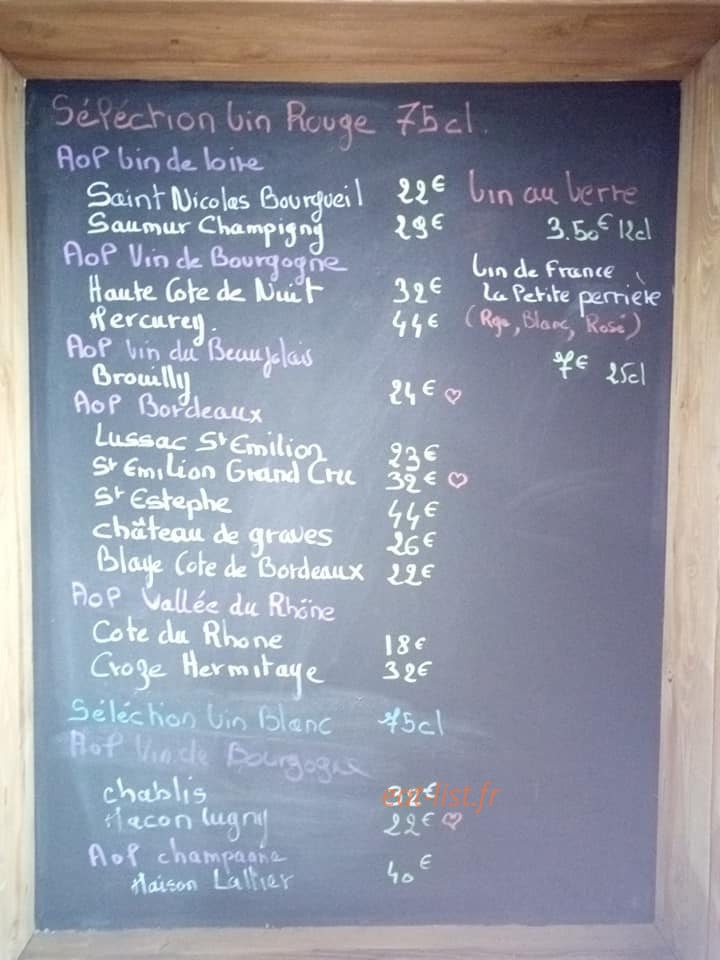 Séléction Vin Rouge 75cl.
AOP Vin de Loire
Saint Nicolas Bourgueil 22€
Saumur Champigny 23€
AOP Vin de Bourgogne
Haute Cote de Nuit 32€
Mercurey. 44€
AOP Vin du Beaujolais
Brouilly 24€ ♡
AOP Bordeaux
Lussac St Emilion 23€
St Emilion Grand Cru 32€ ♡
St Estephe 44€
château de graves 26€
Blaye Cote de Bordeaux 22€
AOP Vallée du Rhône
Cote du Rhone 18€
Croze Hermitage 32€
Séléction Vin Blanc 75cl
AOP Vin de Bourgogne
chablis 32€
Macon lugny 22€ ♡
AOP champagne
Maison Lallier 40€
Vin au Verre
3.50€ 12cl
Vin de France
La Petite perrière
(Rge, Blanc, Rosé)
7€ 25cl
eat-list.fr